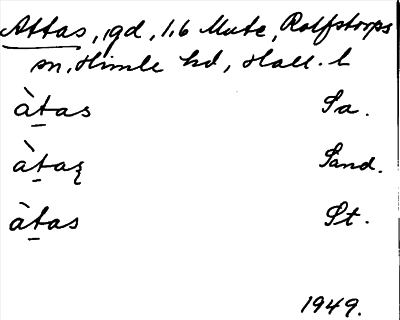 Attas, gd, 1.6 Mate, Rolfstorps
sn, Himle hd, Hall. l
àtas Sa.
àtaʂ Sand.
àtas St.
1949.